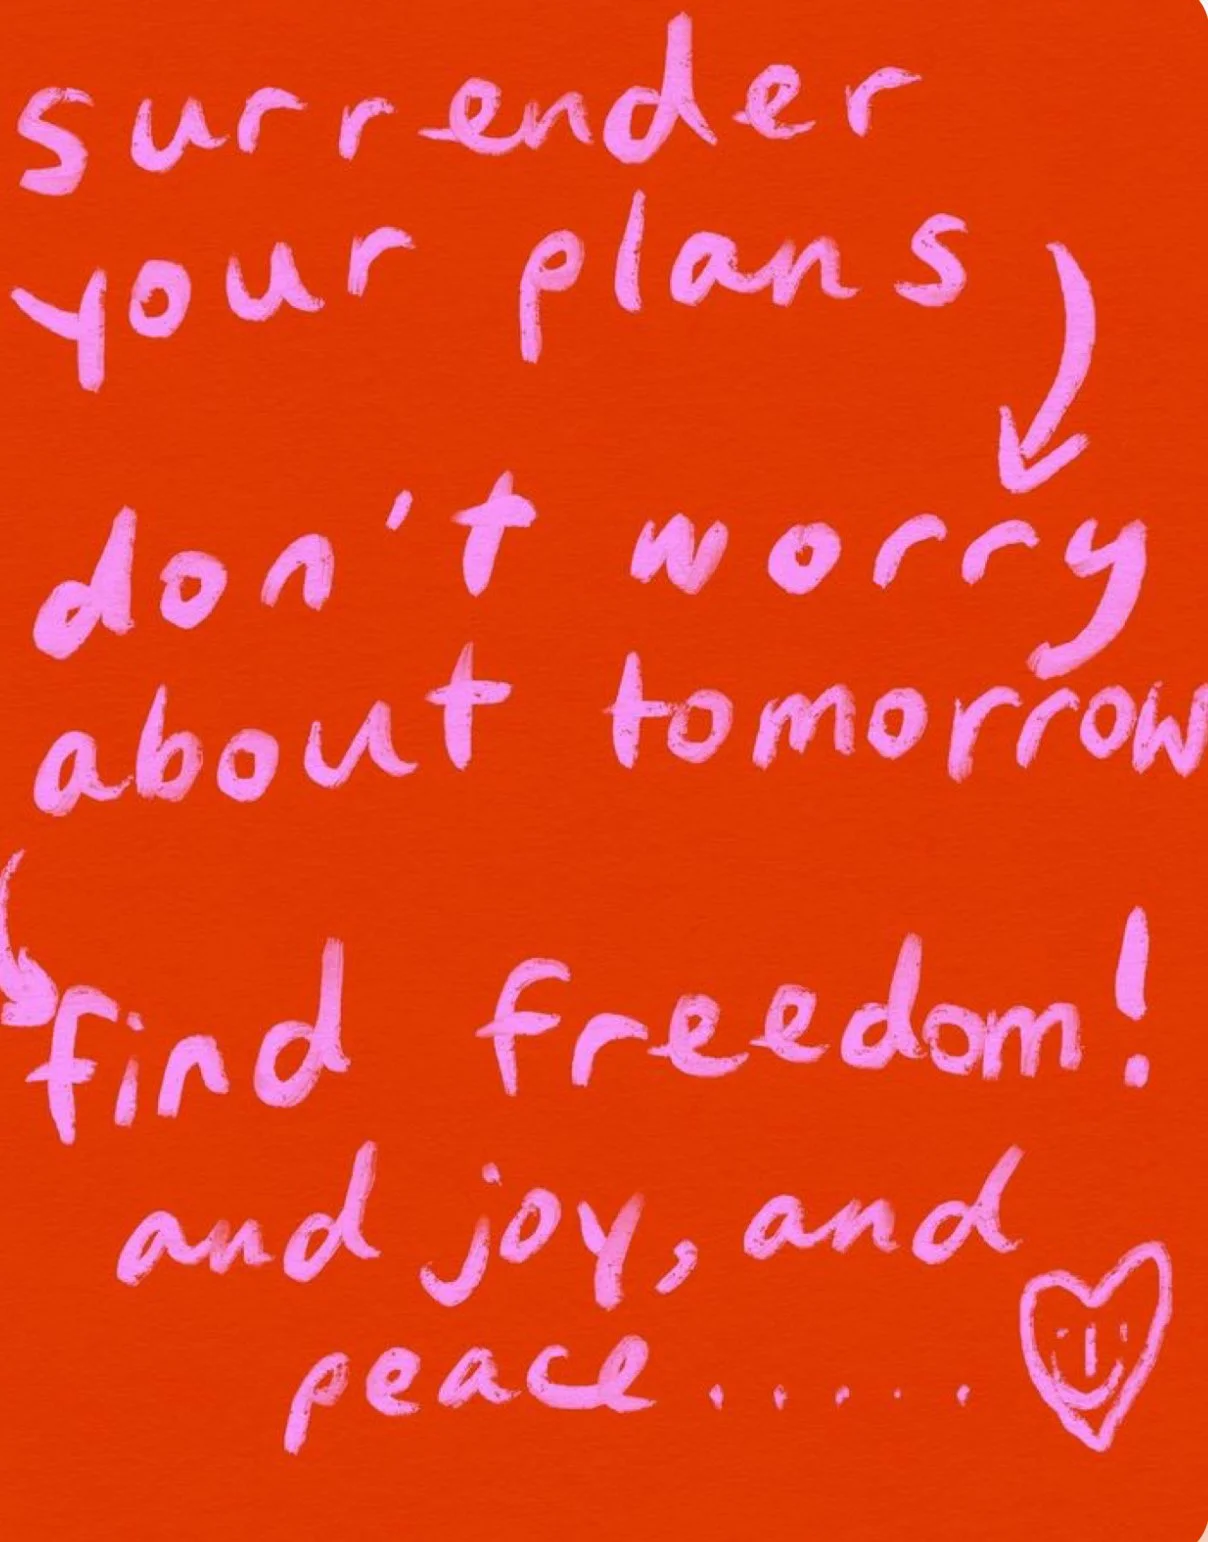 surrender
your plans
don't worry
about tomorrow
find freedom!
and joy, and
peace.....